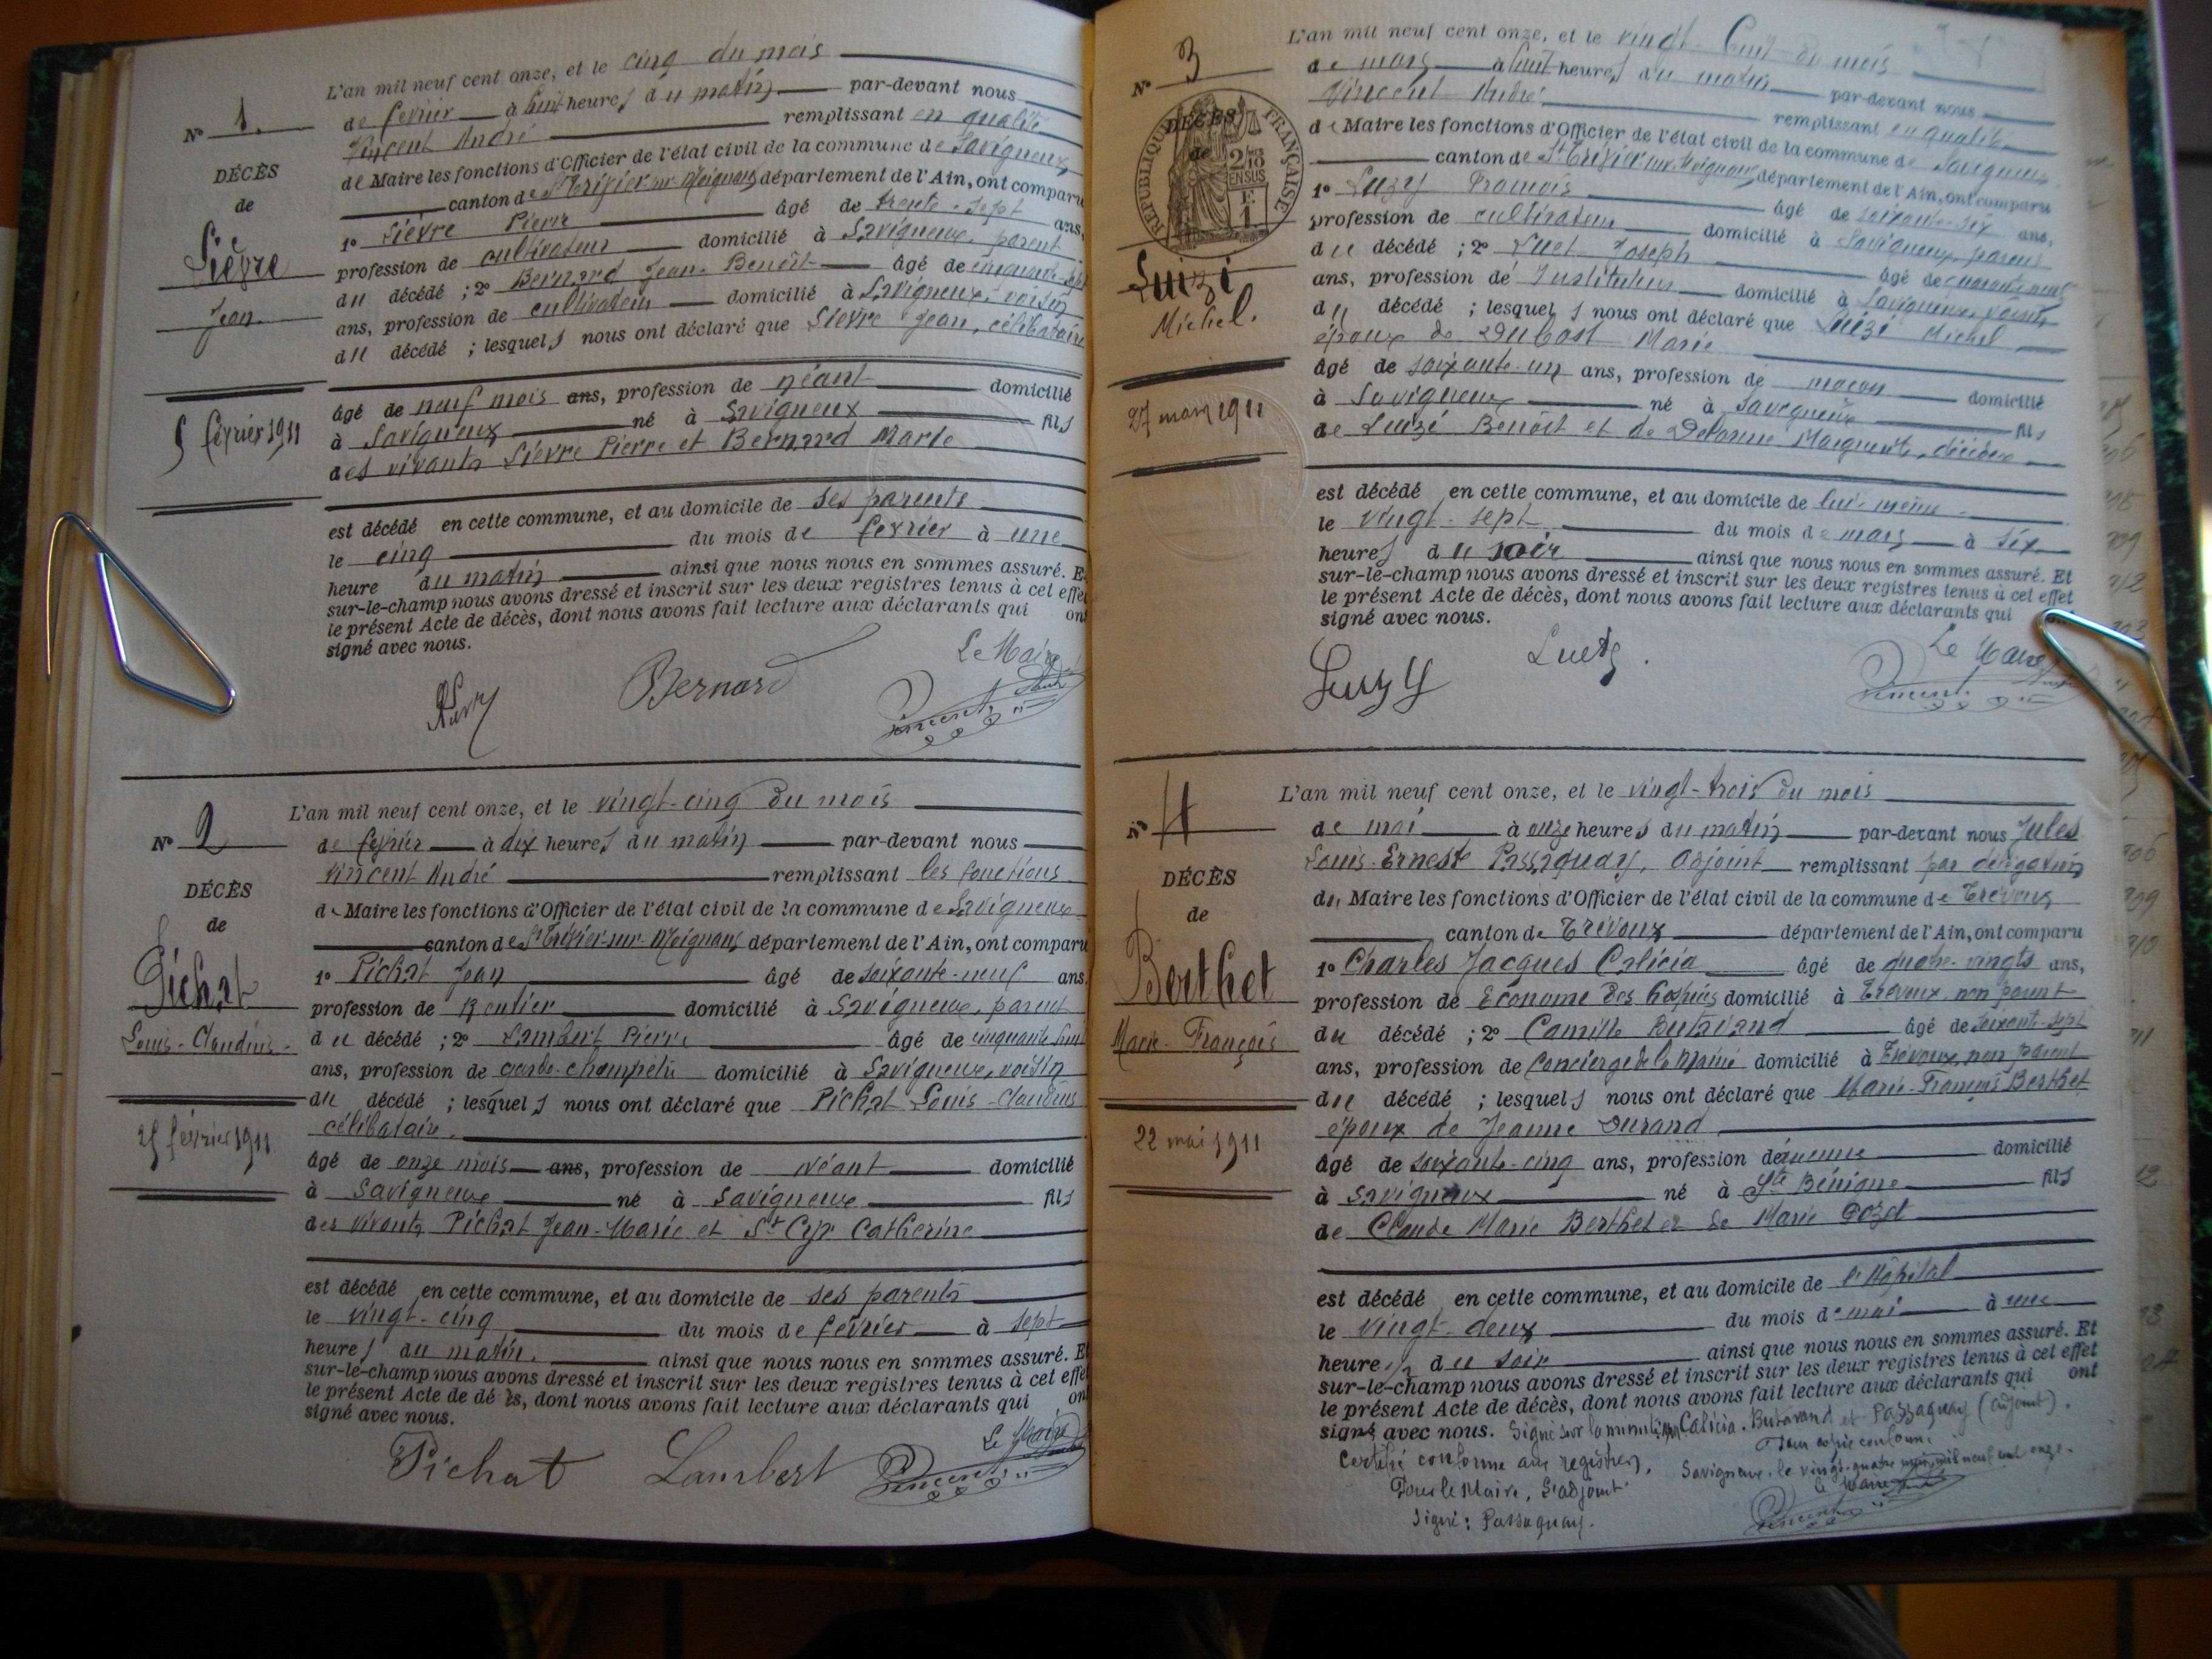 L'an mil neuf cent onze, et le cinq du mois
N° 1.
de février à huit heures du matin par-devant nous
Vincent André remplissant en qualité
DÉCÈS
de Maire les fonctions d'Officier de l'état civil de la commune de Savigneux
de
canton de St Trivier-sur-Moignans département de l'Ain, ont comparu
Sièvre
1° Sièvre Pierre âgé de trente-sept ans,
profession de cultivateur domicilié à Savigneux, parent
Jean
du décédé ; 2° Bernard Jean-Benoît âgé de cinquante-sept
ans, profession de cultivateur domicilié à Savigneux, voisin
du décédé ; lesquels nous ont déclaré que Sièvre Jean, célibataire
âgé de neuf mois ans, profession de néant domicilié
5 février 1911
à Savigneux né à Savigneux fils
des vivants Sièvre Pierre et Bernard Marie
est décédé en cette commune, et au domicile de ses parents
le cinq du mois de février à une
heure du matin ainsi que nous nous en sommes assuré. Et
sur-le-champ nous avons dressé et inscrit sur les deux registres tenus à cet effet
le présent Acte de décès, dont nous avons fait lecture aux déclarants qui ont
signé avec nous.
Le Maire
Bernard
Vincent
L'an mil neuf cent onze, et le vingt-cinq du mois
N° 2
de février à dix heures du matin par-devant nous
Vincent André remplissant les fonctions
DÉCÈS
de Maire les fonctions d'Officier de l'état civil de la commune de Savigneux
de
canton de St Trivier-sur-Moignans département de l'Ain, ont comparu
Pichat
1° Pichat Jean âgé de soixante-neuf ans,
profession de Rentier domicilié à Savigneux, parent
Louis-Claudius
du décédé ; 2° Lambert Pierre âgé de cinquante-huit
ans, profession de garde-champêtre domicilié à Savigneux, voisin
du décédé ; lesquels nous ont déclaré que Pichat Louis-Claudius
célibataire.
25 février 1911
âgé de onze mois ans, profession de Néant domicilié
à Savigneux né à Savigneux fils
des vivants Pichat Jean-Marie et St Cyr Catherine
est décédé en cette commune, et au domicile de ses parents
le vingt-cinq du mois de février à sept
heures du matin. ainsi que nous nous en sommes assuré. Et
sur-le-champ nous avons dressé et inscrit sur les deux registres tenus à cet effet
le présent Acte de décès, dont nous avons fait lecture aux déclarants qui ont
signé avec nous.
Le Maire
Pichat Lambert Vincent
L'an mil neuf cent onze, et le vingt-huit du mois
N° 3
de mars à huit heures du matin par-devant nous
Vincent André remplissant en qualité
RÉPUBLIQUE FRANÇAISE
DÉCÈS
de
de Maire les fonctions d'Officier de l'état civil de la commune de Savigneux
canton de St Trivier-sur-Moignans département de l'Ain, ont comparu
1° Luzy François âgé de soixante-six ans,
profession de cultivateur domicilié à Savigneux, parent
Luizi
du décédé ; 2° Joseph âgé de quarante-neuf
Michel.
ans, profession de Instituteur domicilié à Savigneux, voisin
du décédé ; lesquels nous ont déclaré que Luizi Michel
époux de Dubost Marie
âgé de soixante-un ans, profession de maçon domicilié
27 mars 1911
à Savigneux né à Savigneux fils
de Luizi Benoît et de Delorme Marguerite, décédés
est décédé en cette commune, et au domicile de lui-même
le vingt-sept du mois de mars à six
heures du soir ainsi que nous nous en sommes assuré. Et
sur-le-champ nous avons dressé et inscrit sur les deux registres tenus à cet effet
le présent Acte de décès, dont nous avons fait lecture aux déclarants qui
signé avec nous.
Le Maire
Luzy
Vincent
L'an mil neuf cent onze, et le vingt-trois du mois
N° 4
de mai à onze heures du matin par-devant nous Jules
Louis-Ernest Passaquay, Adjoint remplissant par délégation
DÉCÈS
du Maire les fonctions d'Officier de l'état civil de la commune de Trévoux
de
canton de Trévoux département de l'Ain, ont comparu
Berthet
1° Charles Jacques Calicia âgé de quatre-vingts ans,
profession de Économe des hospices domicilié à Trévoux, non parent
Marie-François
du décédé ; 2° Camille Butavand âgé de soixante-sept
ans, profession de Concierge de la Mairie domicilié à Trévoux, non parent
du décédé ; lesquels nous ont déclaré que Marie-François Berthet
époux de Jeanne Durand
22 mai 1911
âgé de soixante-cinq ans, profession de domicilié
à Savigneux né à Ste Bénigne fils
de Claude Marie Berthet et de Marie Gozet
est décédé en cette commune, et au domicile de l'Hôpital
le vingt-deux du mois de mai à une
heure ½ du soir ainsi que nous nous en sommes assuré. Et
sur-le-champ nous avons dressé et inscrit sur les deux registres tenus à cet effet
le présent Acte de décès, dont nous avons fait lecture aux déclarants qui ont
signé avec nous. Signé sur la minute Calicia, Butavand et Passaquay (adjoint).
Certifié conforme aux registres,
Pour copie conforme.
Savigneux, le vingt-quatre mai mil neuf cent onze.
Pour le Maire, L'adjoint
Le Maire
Signé : Passaquay.
Vincent